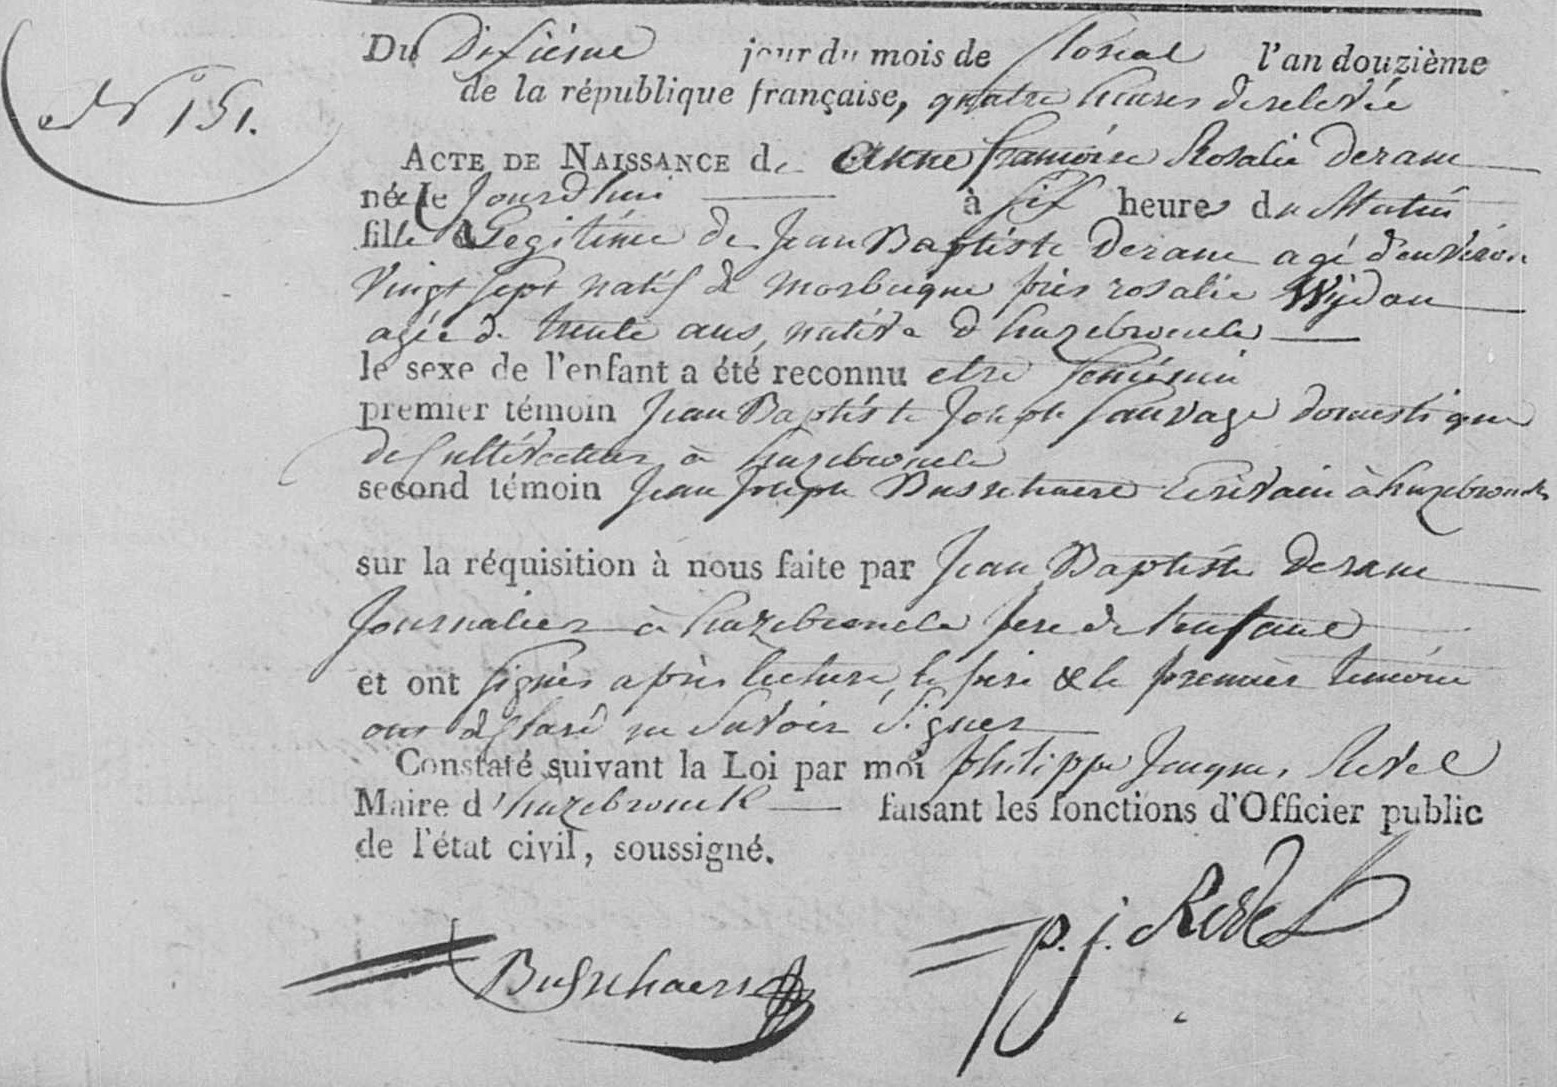 N° 151.
Du Dixiéme jour du mois de floreal l'an douzième
de la république française, quatre heures de relevée
ACTE DE NAISSANCE de Anne françoise Rosalie Deram
née le jourd'hui à six heures du Matin
fille Legitime de Jean Baptiste Deram agé d'environ
vingt sept natif de morbecque rosalie Wijdau
agée de trente ans, native d'hazebrouck
le sexe de l'enfant a été reconnu etre feminin
premier témoin Jean Baptiste Joseph Sauvage domestique
de Cultivateur à hazebrouck
second témoin Jean Joseph Busschaere Ecrivain à hazebrouck
sur la réquisition à nous faite par Jean Baptiste Deram
Journalier à hazebrouck pere de l'enfant
et ont signés après lecture, le pere & le premier temoin
ont déclaré ne savoir signer
Constaté suivant la Loi par moi philippe Jacques Revel
Maire d'hazebrouck faisant les fonctions d'Officier public
de l'état civil, soussigné.
Busschaere p. j. Revel